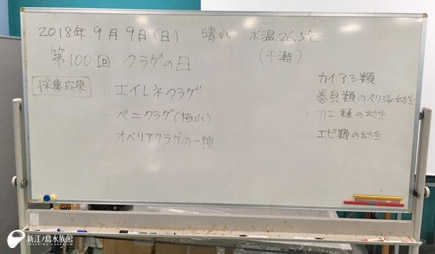 2018年9月9日(日) 晴れ 水温26.5℃
(干潮)
第100回 クラゲの日
採集成果
エイレネクラゲ
ベニクラゲ(極小)
オベリアクラゲの一種
カイアシ類
巻貝類のベリジャー幼生
カニ類の幼生
エビ類の幼生
新江ノ島水族館